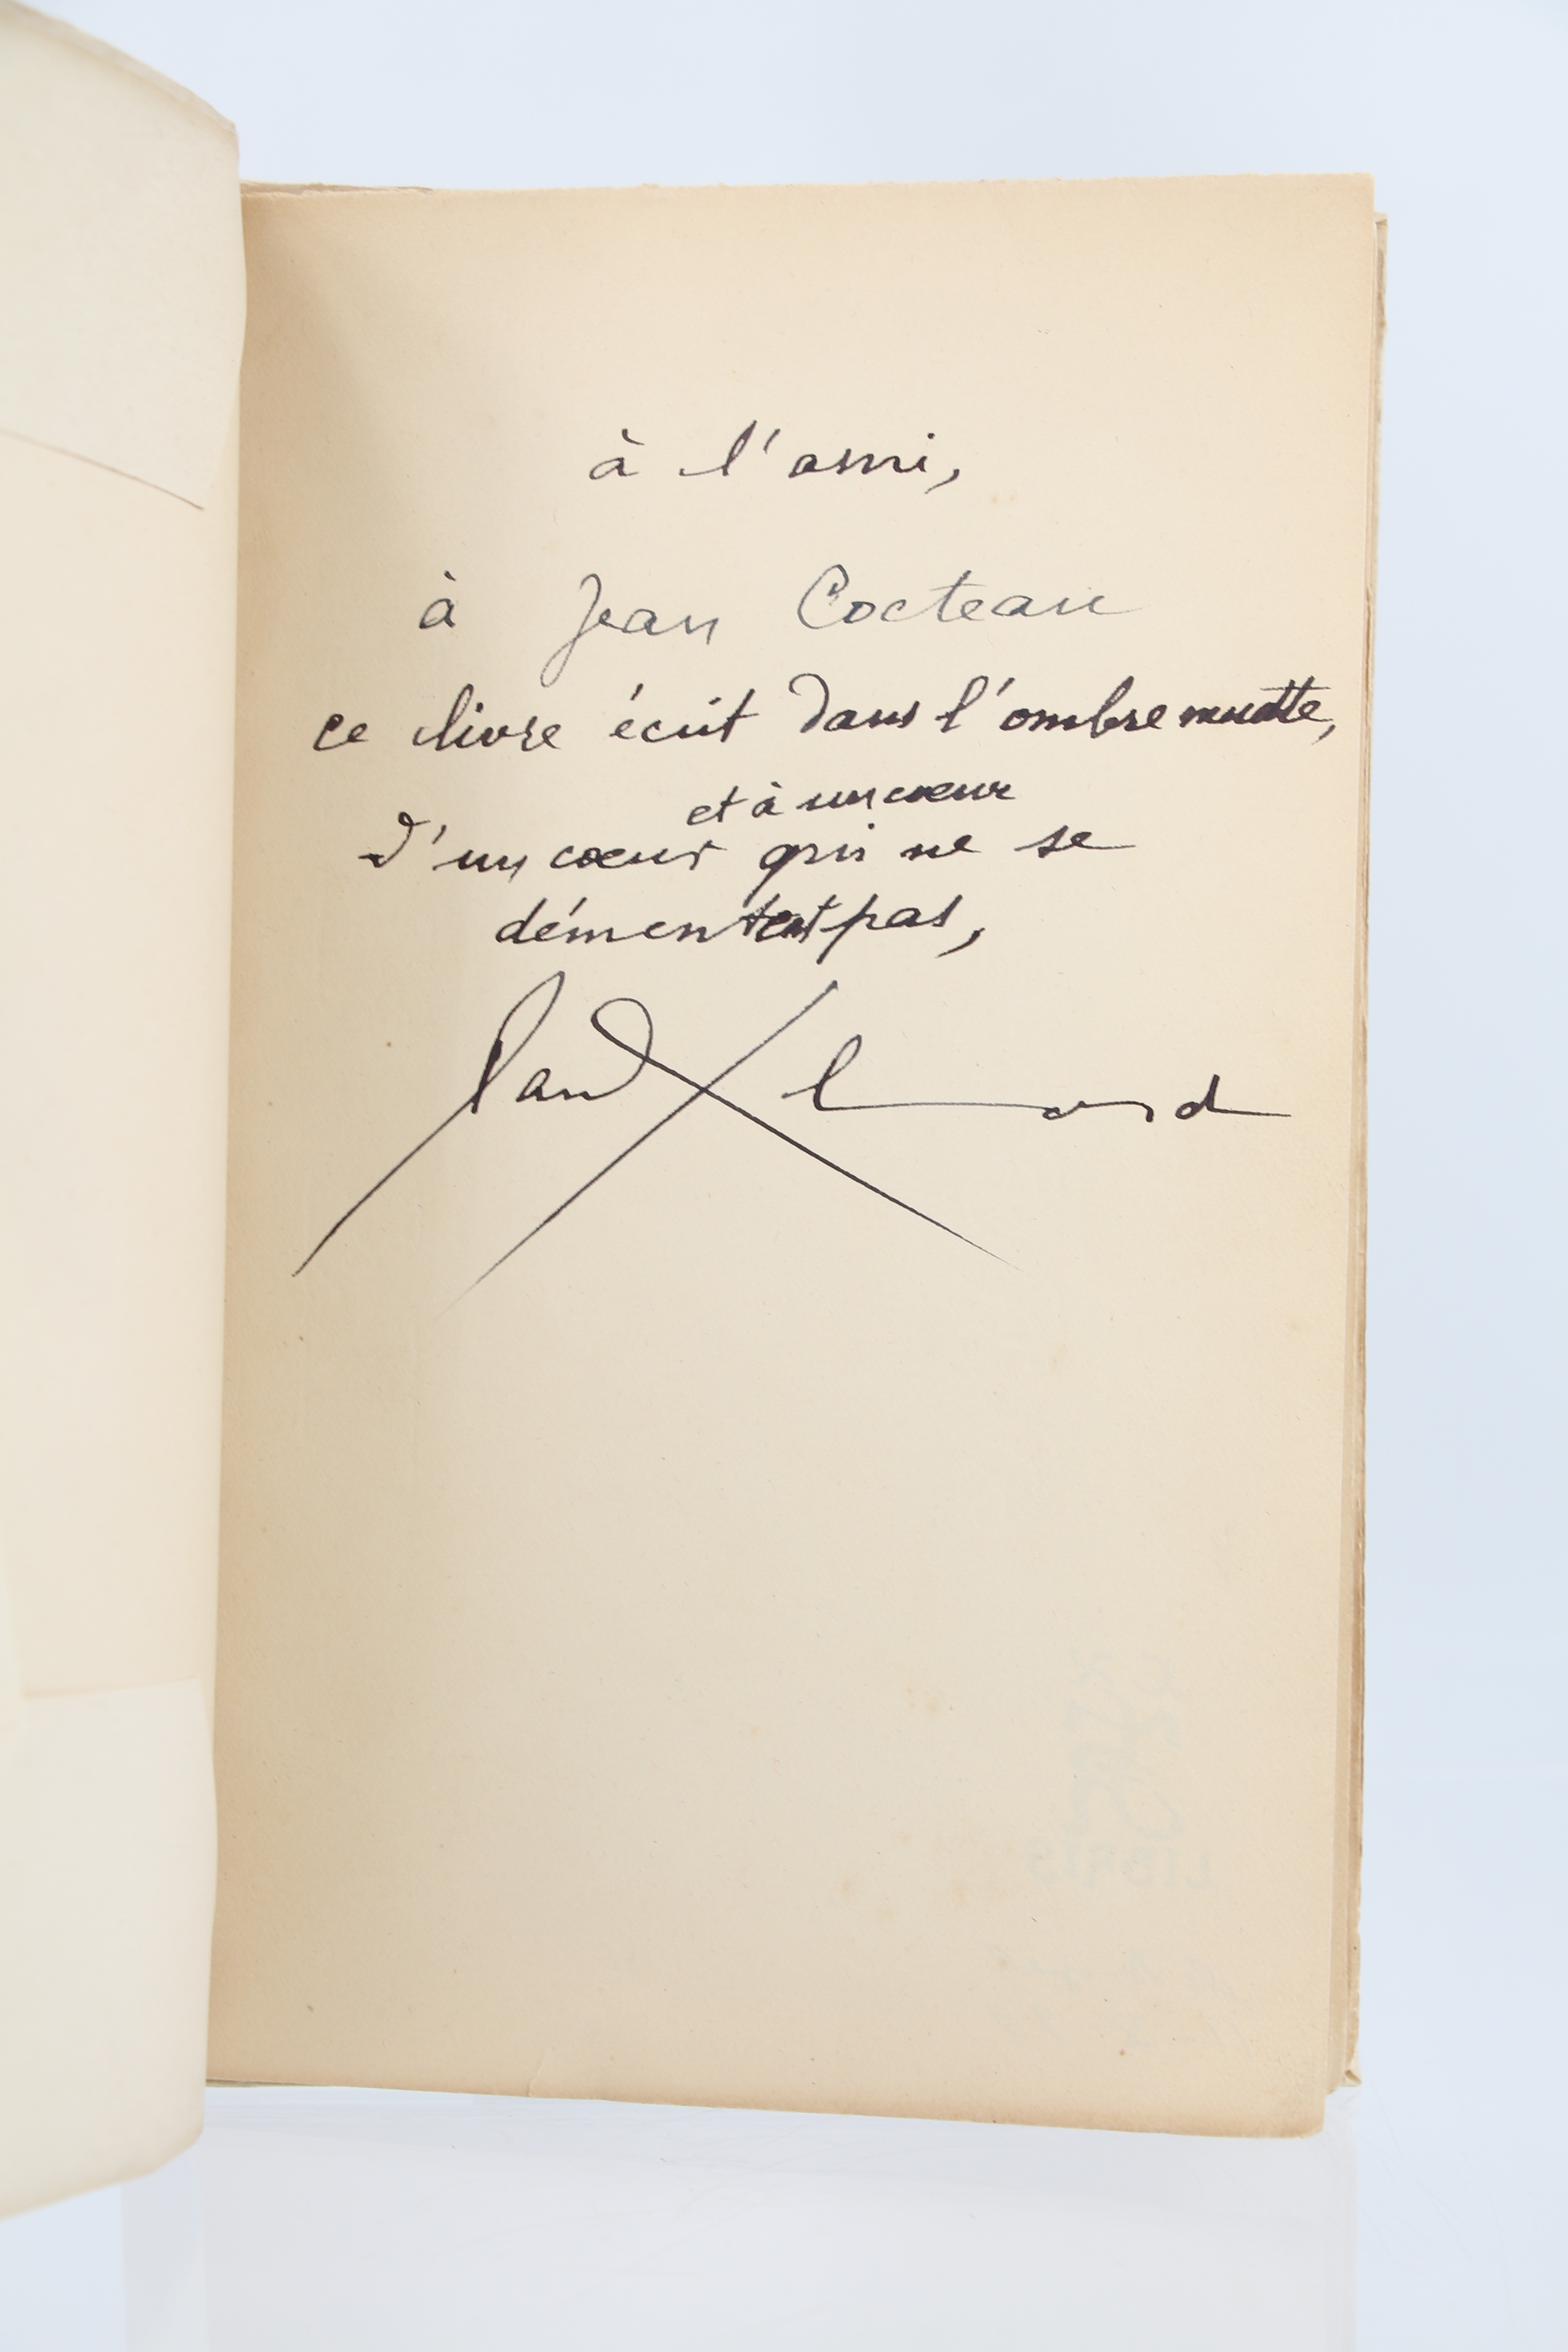 à l'ami,
à Jean Cocteau
ce livre écrit dans l'ombre muette,
et à un cœur
d'un cœur qui ne se
démentent pas,
Paul Eluard
LIBRIS